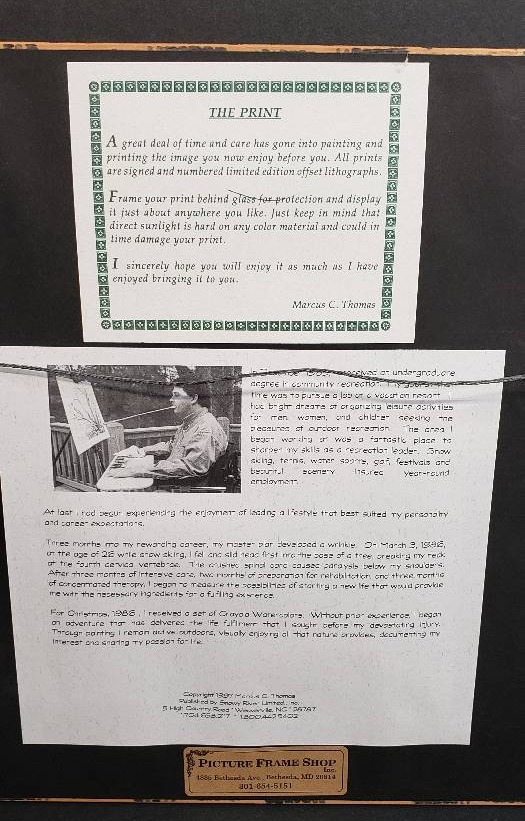 THE PRINT
A great deal of time and care has gone into painting and
printing the image you now enjoy before you. All prints
are signed and numbered limited edition offset lithographs.
Frame your print behind glass for protection and display
it just about anywhere you like. Just keep in mind that
direct sunlight is hard on any color material and could in
time damage your print.
I sincerely hope you will enjoy it as much as I have
enjoyed bringing it to you.
Marcus C. Thomas
received an undergraduate
degree in community recreation.
time was to pursue a job at a vacation resort. I
had bright dreams of organizing leisure activities
for men, women, and children seeking the
pleasures of outdoor recreation. The area I
began working at was a fantastic place to
sharpen my skills as a recreation leader. Snow
skiing, tennis, water sports, golf, festivals and
beautiful scenery insured year-round
employment.
At last I had begun experiencing the enjoyment of leading a lifestyle that best suited my personality
and career expectations.
Three months into my rewarding career, my master plan developed a wrinkle. On March 3, 1986,
at the age of 26 while snow skiing, I fell and slid head first into the base of a tree, breaking my neck
at the fourth cervical vertebrae. The crushed spinal cord caused paralysis below my shoulders.
After three months of intensive care, two months of preparation for rehabilitation, and three months
of concentrated therapy, I began to measure the possibilities of starting a new life that would provide
me with the necessary ingredients for a fulfilling existence.
For Christmas, 1986, I received a set of Crayola Watercolors. Without prior experience, I began
an adventure that has delivered the life fulfillment that I sought before my devastating injury.
Through painting I remain active outdoors, visually enjoying all that nature provides, documenting my
interest and sharing my passion for life.
Copyright Marcus C. Thomas
Published by Snowy River Limited, Inc.
5 High Country Road Weaverville, NC 28787
PICTURE FRAME SHOP
Inc.
4886 Bethesda Ave., Bethesda, MD 20814
301-654-5151